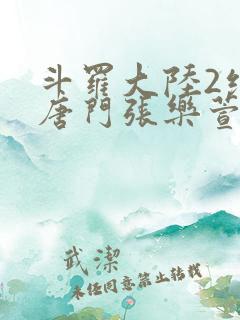 斗羅大陸2絕
唐門張樂萱
武潔
未经同意禁止转载